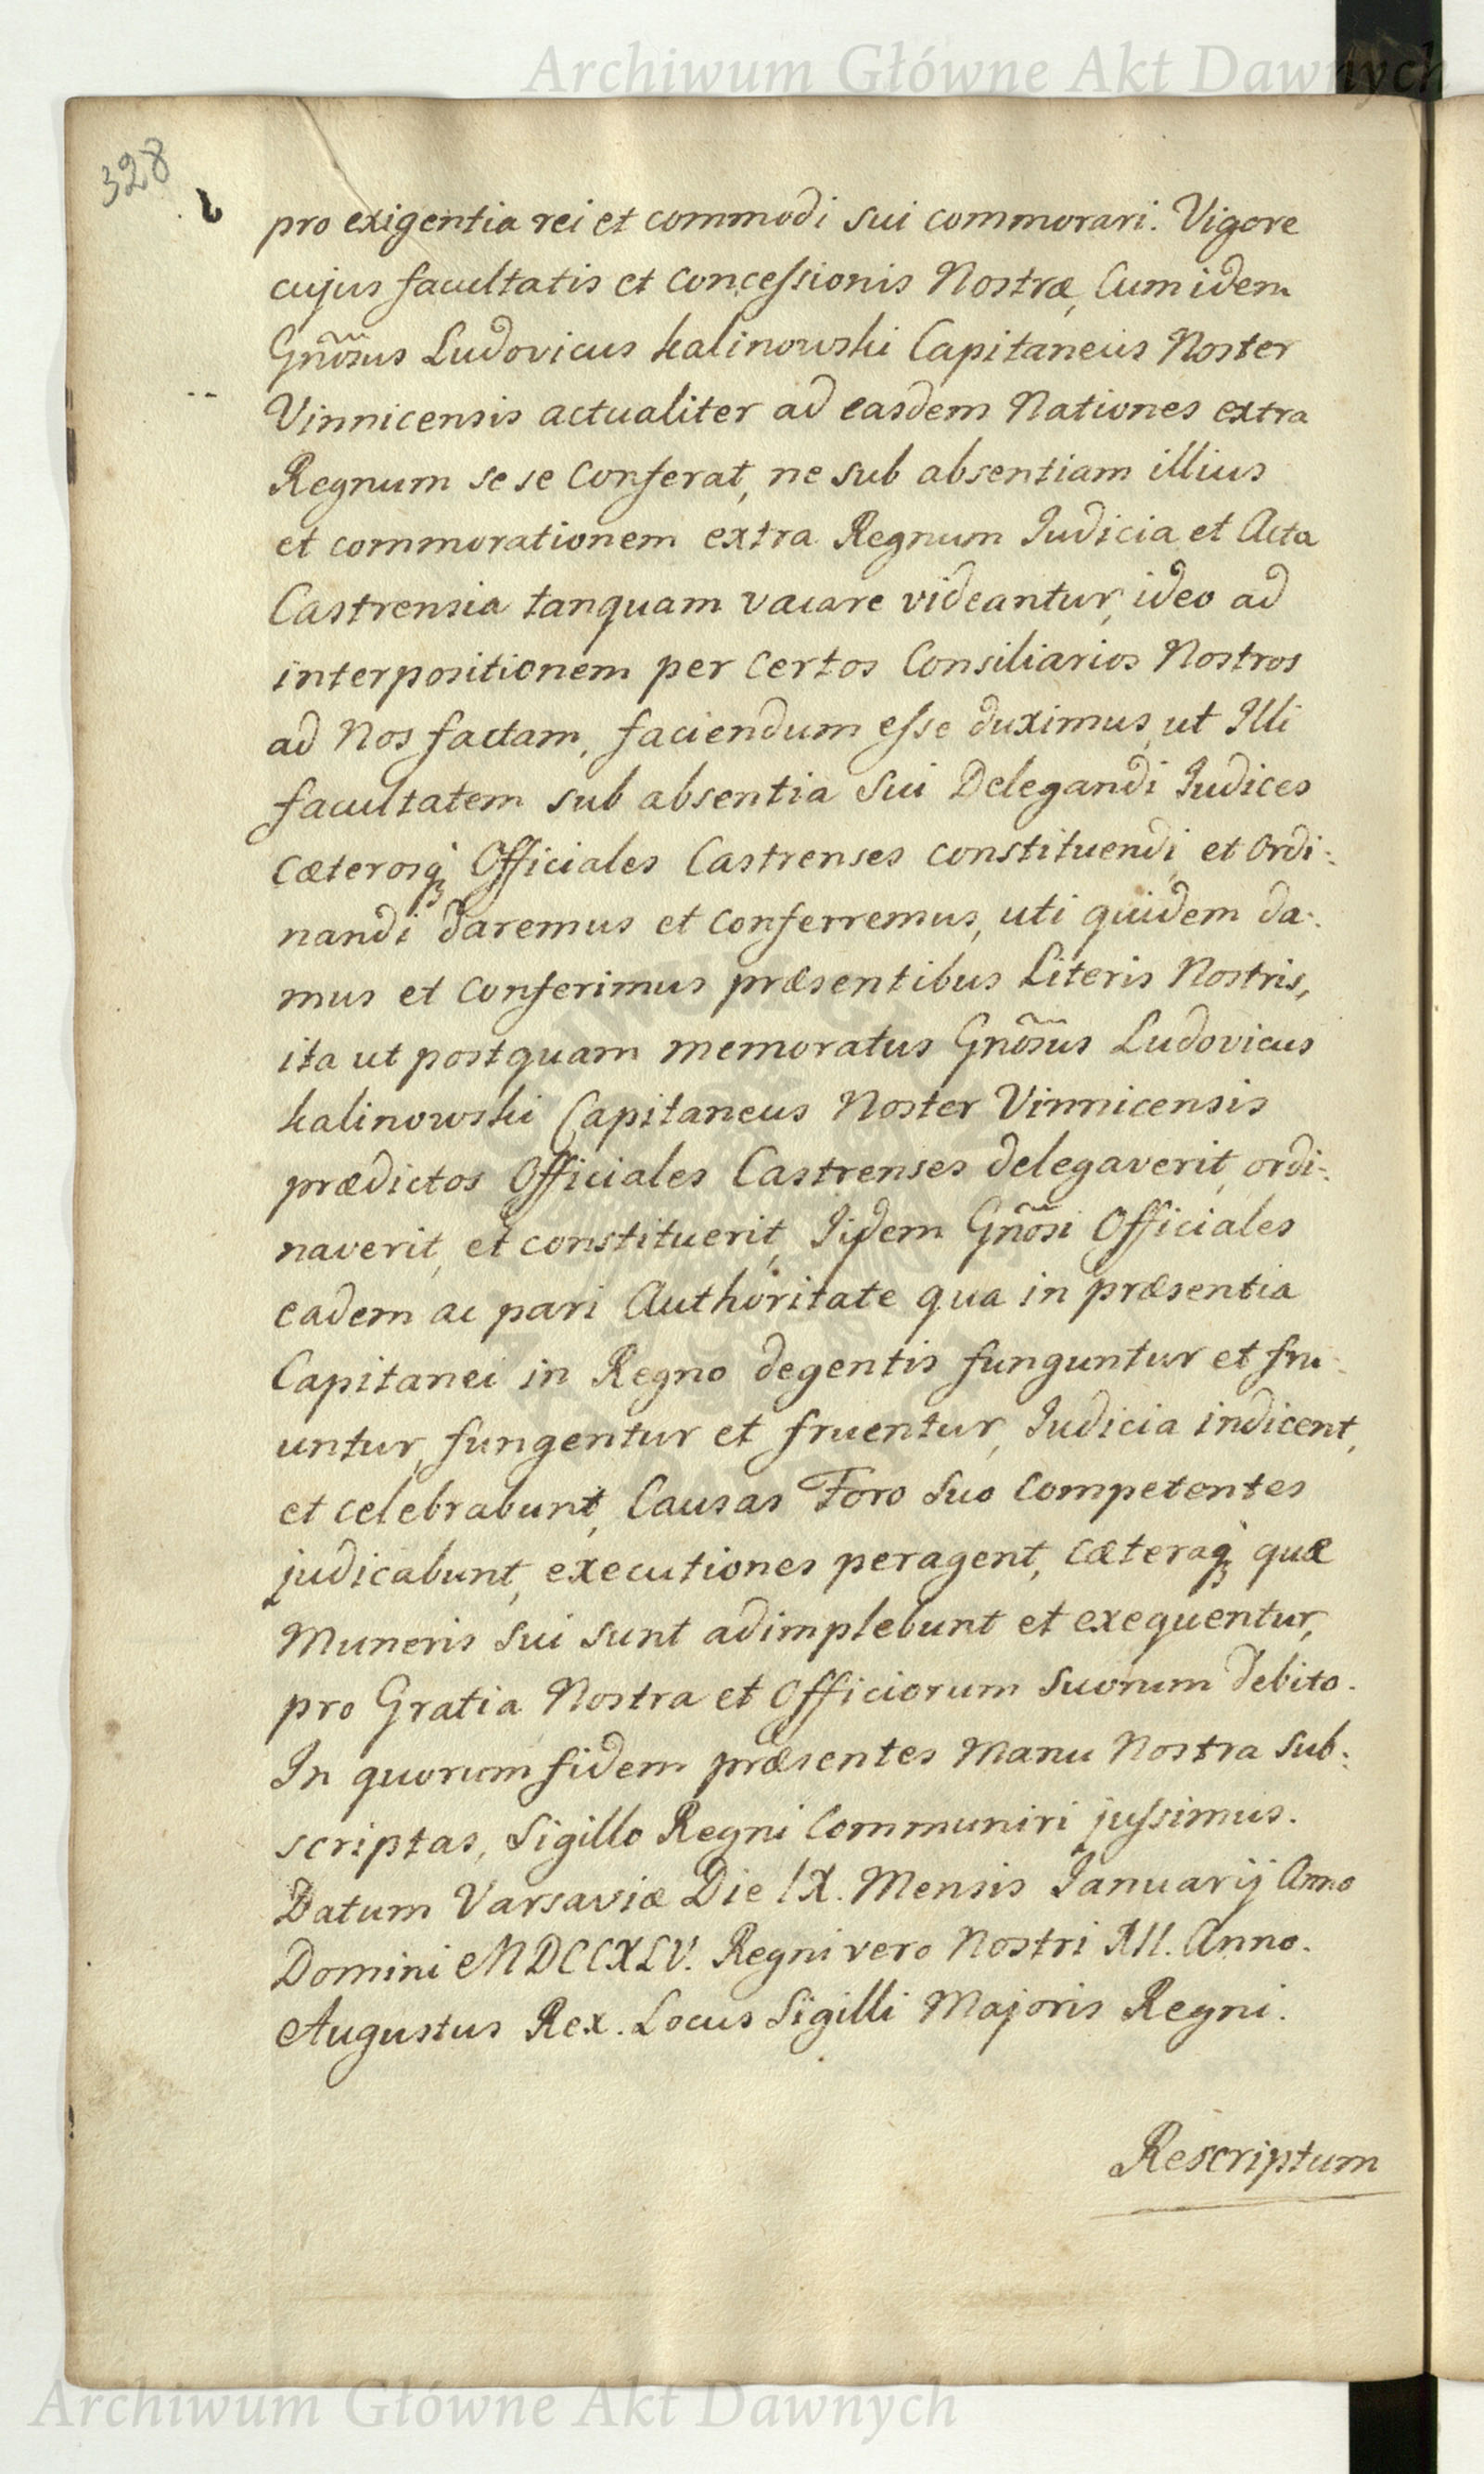 Archiwum Główne Akt Dawnych
328
pro exigentia rei et commodi sui commorari. Vigore
cujus facultatis et concessionis Nostræ, Cum idem
Gnõsus Ludovicus Kalinowski Capitaneus Noster
Vinnicensis actualiter ad easdem Nationes extra
Regnum se se Conferat, ne sub absentiam illius
et commorationem extra Regnum Judicia et Acta
Castrensia tanquam vacare videantur, ideo ad
interpositionem per Certos Consiliarios Nostros
ad Nos factam, faciendum esse duximus, ut Illi
facultatem sub absentia Sui Delegandi Judices
Cæterosq́ Officiales Castrenses constituendi, et Ordi:
nandi daremus et Conferremus, uti quidem da:
mus et Conferimus præsentibus Literis Nostris,
ita ut postquam memoratus Gnõsus Ludovicus
Kalinowski Capitaneus Noster Vinnicensis
prædictos Officiales Castrenses delegaverit, ordi:
naverit, et constituerit, Iidem Gnõsi Officiales
eadem ac pari Authoritate qua in præsentia
Capitanei in Regno degentis funguntur et fru:
untur, fungentur et fruentur, Judicia indicent,
et celebrabunt, Causas Foro Suo Competentes
judicabunt, executiones peragent, Cæteraq́ quæ
Muneris Sui sunt adimplebunt et exequentur,
pro Gratia Nostra et Officiorum Suorum debito.
In quorum fidem præsentes Manu Nostra Sub:
scriptas, Sigillo Regni Communiri jussimus.
Datum Varsaviæ Die IX. Mensis Januarij Anno
Domini MDCCXLV. Regni vero Nostri XII. Anno.
Augustus Rex. Locus Sigilli Majoris Regni.
Rescriptum
Archiwum Główne Akt Dawnych